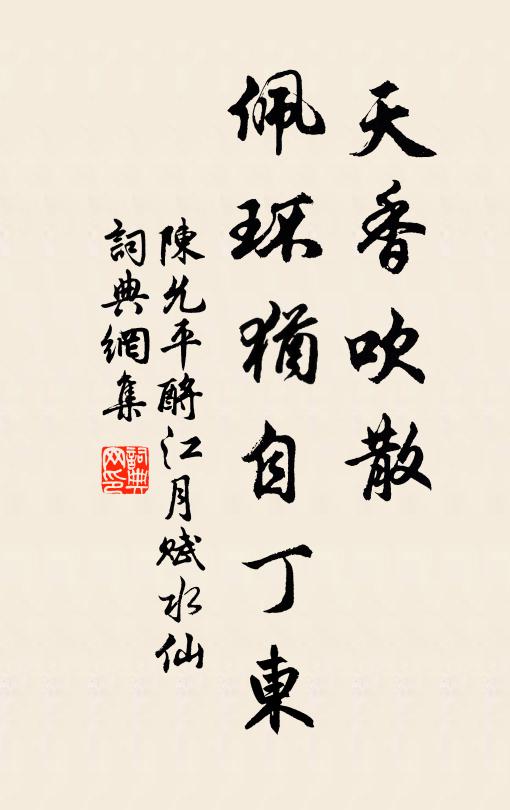 天香吹散
佩环猶自丁東
陳允平酹江月賦水仙
詞典網集
詞典网印